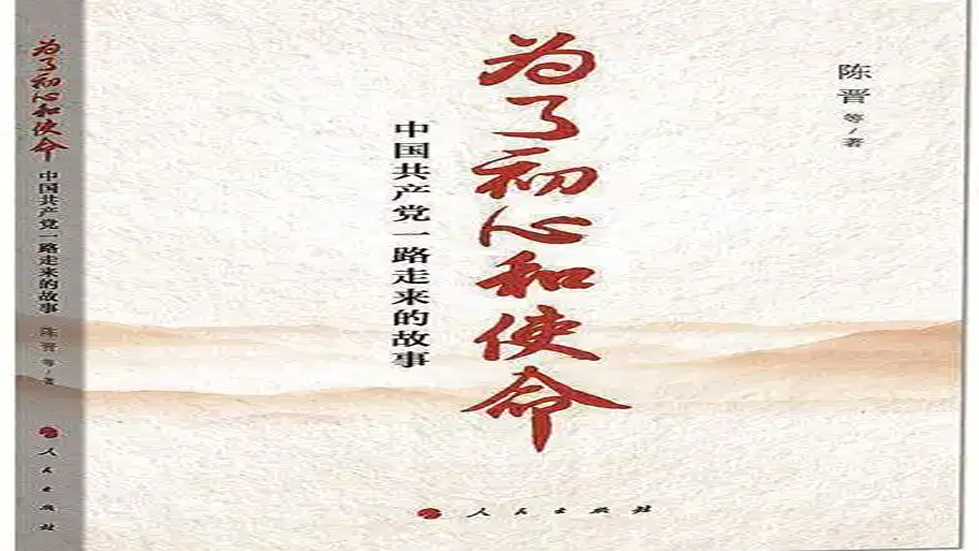 为了初心和使命
中国共产党一路走来的故事
陈晋等/著
人民出版社
为了初心和使命
中国共产党一路走来的故事
陈晋等/著
人民出版社